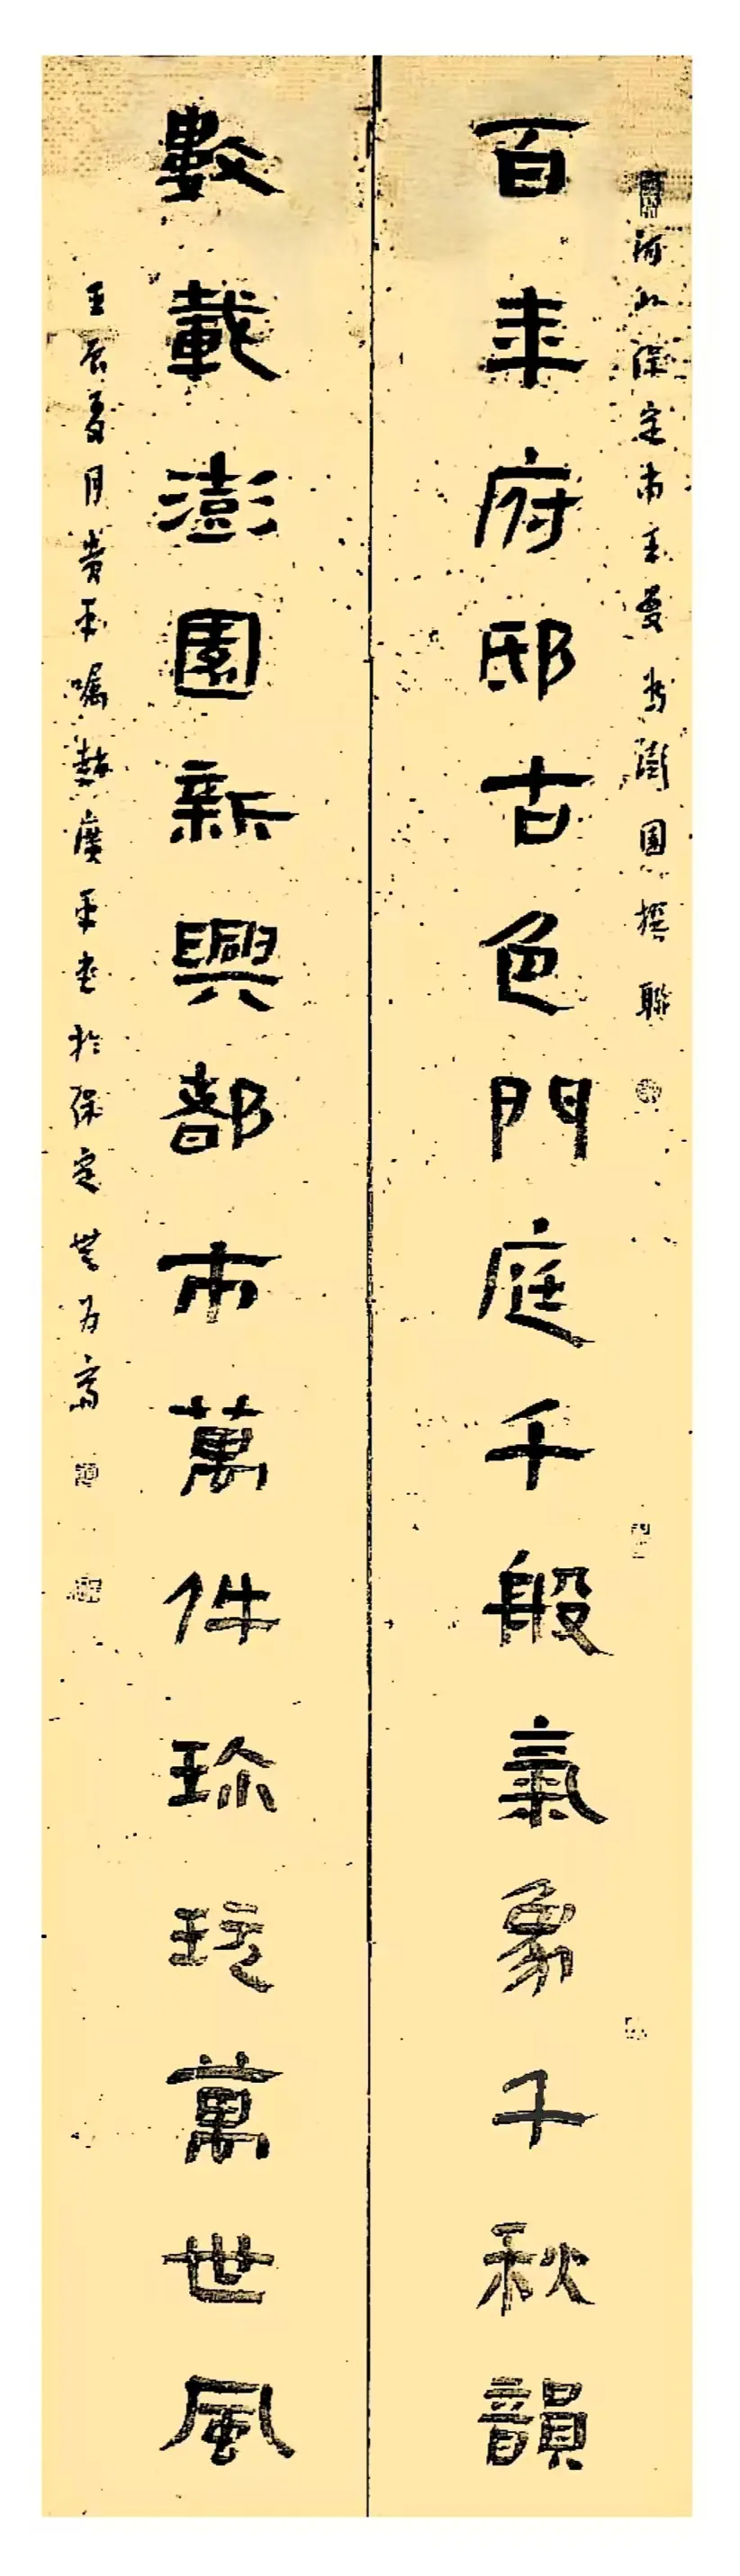 河北保定市王曼為澎園撰聯
百年府邸古色門庭千般氣象千秋韻
數載澎園新興都市萬件珍玩萬世風
壬辰夏月黃玉囑熱廣玉書於保定無為齋